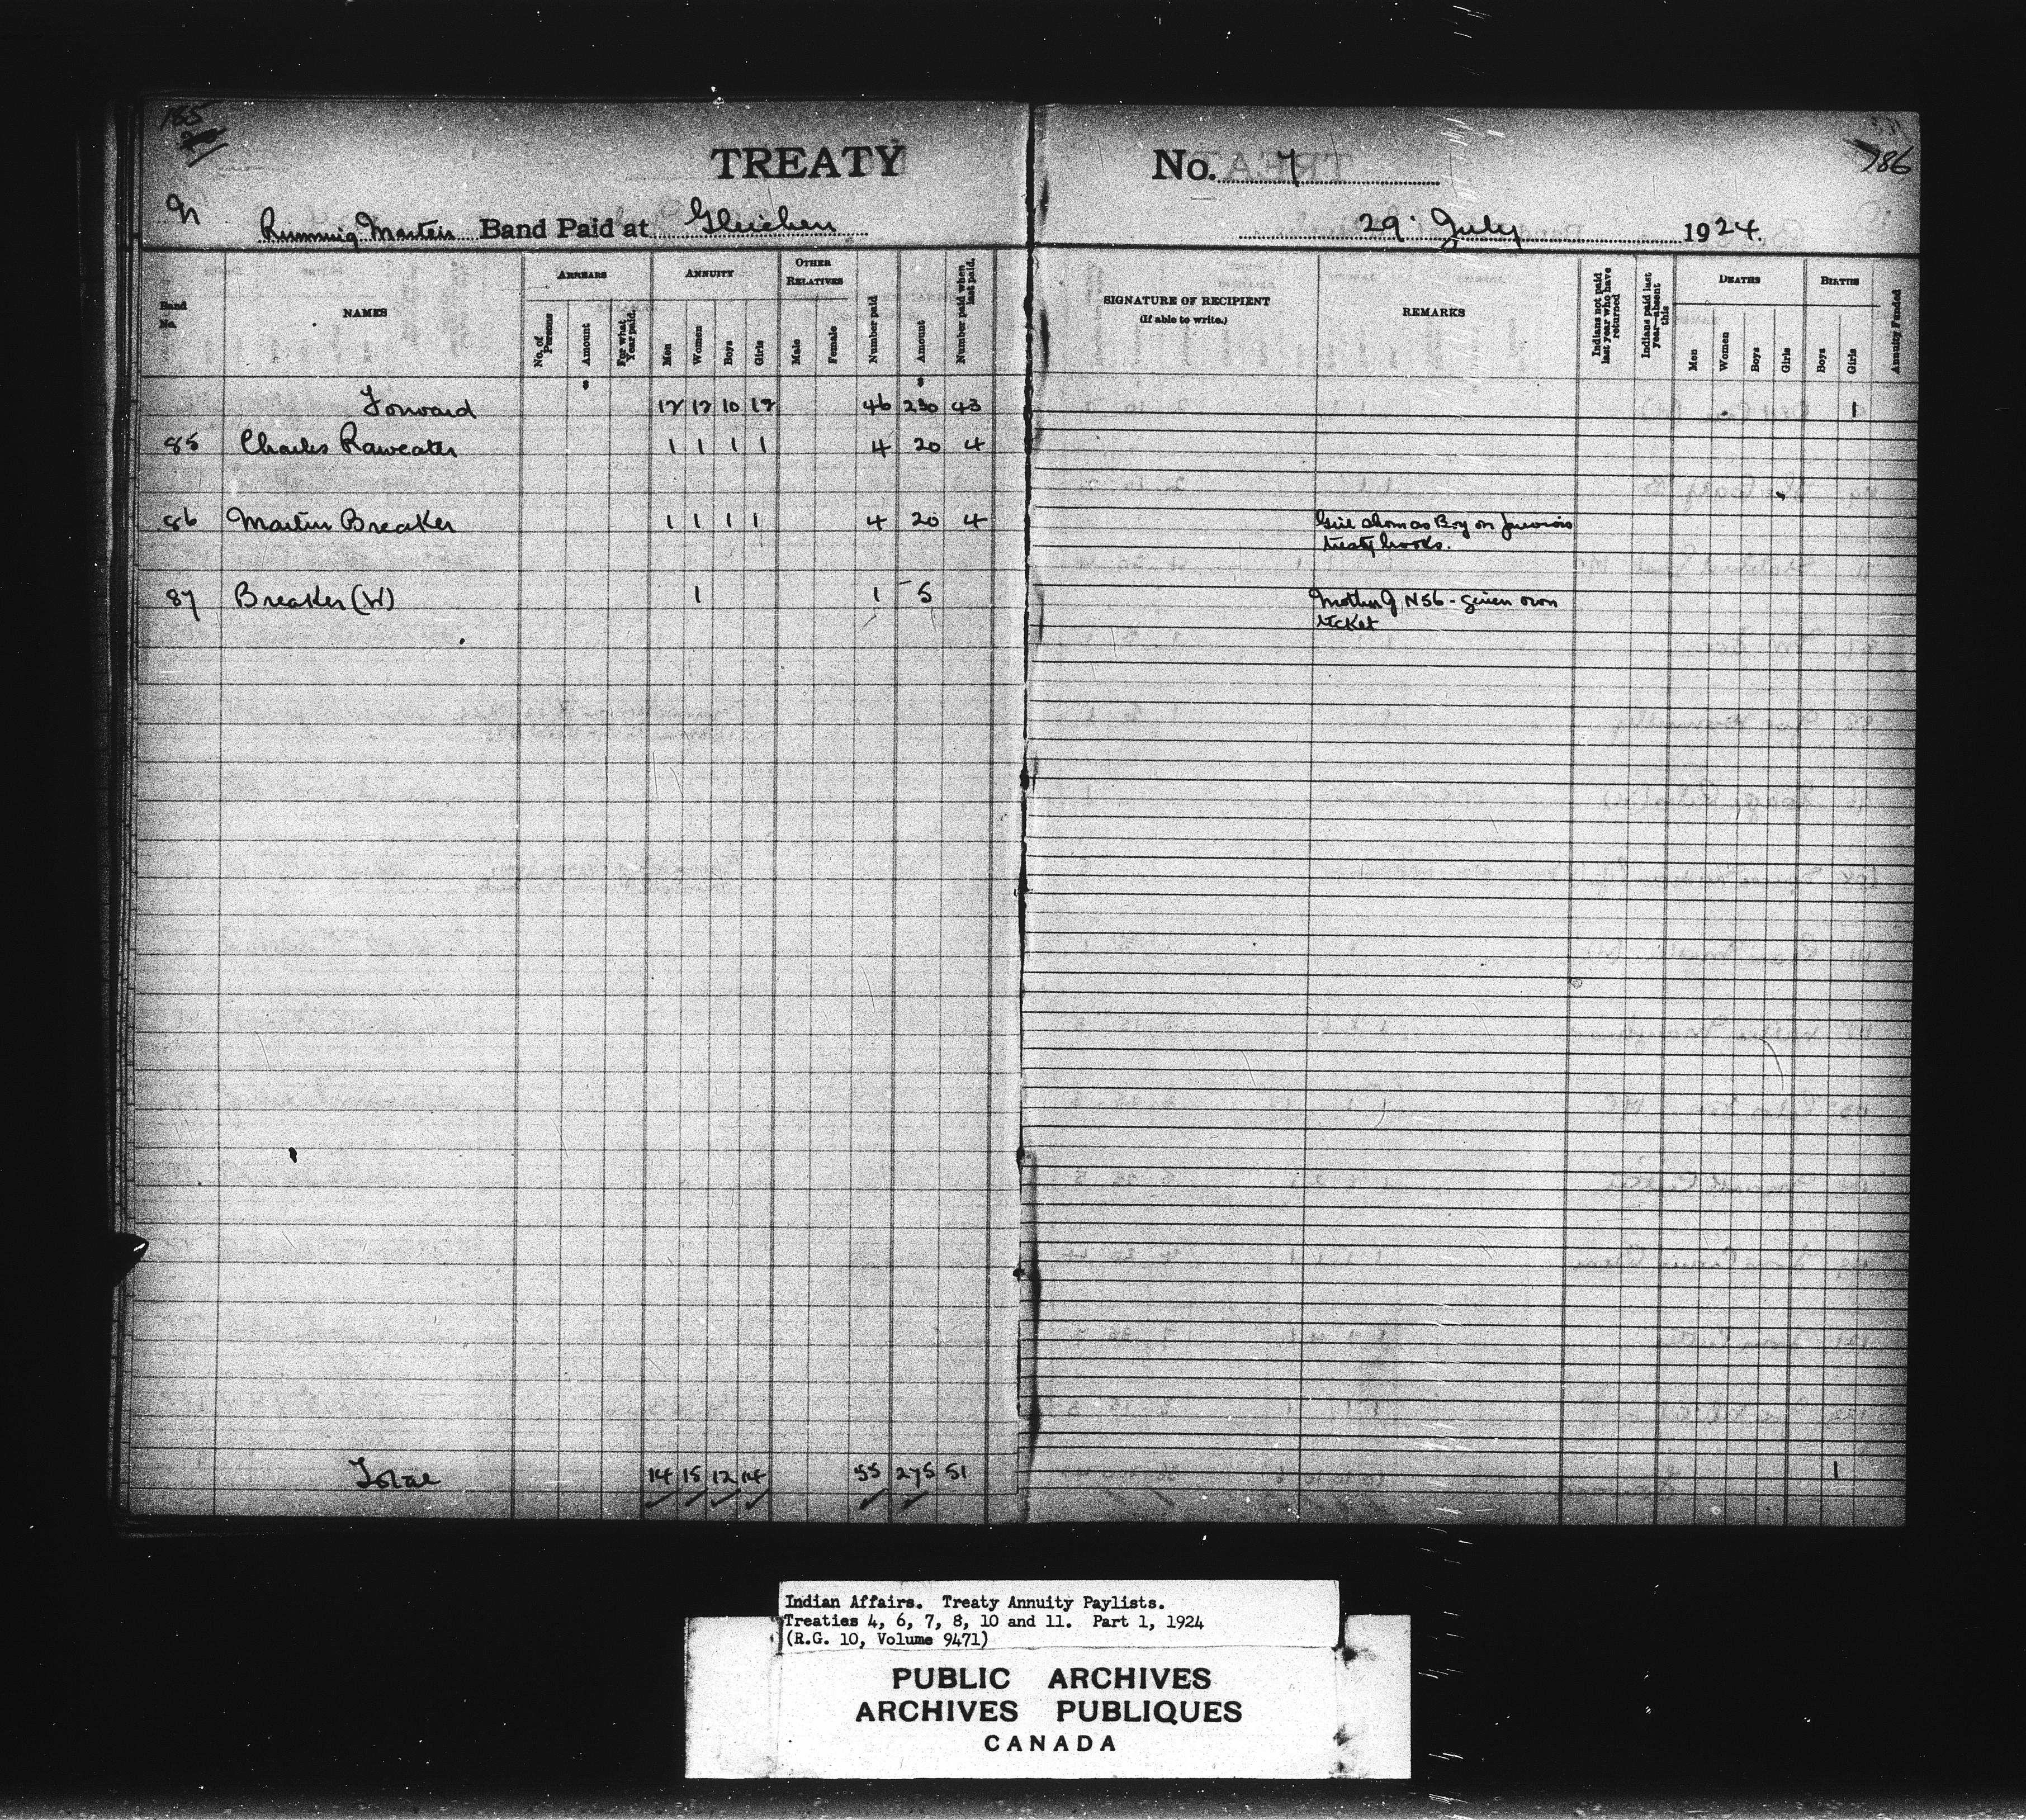 185
186
TREATY No. 7
N Running Martens Band Paid at Gleichen 29 July 1924.
Band No. NAMES ARREARS ANNUITY OTHER RELATIVES Number paid Amount Number paid when last paid. SIGNATURE OF RECIPIENT (If able to write.) REMARKS Indians not paid last year who have returned Indians paid last year—absent this DEATHS BIRTHS Annuity Funded
No. of Persons Amount For what Year paid. Men Women Boys Girls Male Female Men Women Boys Girls Boys Girls
Forward 12 12 10 12 46 230 43 1
85 Charles Raweater 1 1 1 1 4 20 4
86 Martin Breaker 1 1 1 1 4 20 4 Girl shown as Boy on previous
treaty books.
87 Breaker (W) 1 1 5 Mother of N56 - given own
ticket
Total 14 15 12 14 55 275 51 1
Indian Affairs. Treaty Annuity Paylists.
Treaties 4, 6, 7, 8, 10 and 11. Part 1, 1924
(R.G. 10, Volume 9471)
PUBLIC ARCHIVES
ARCHIVES PUBLIQUES
CANADA